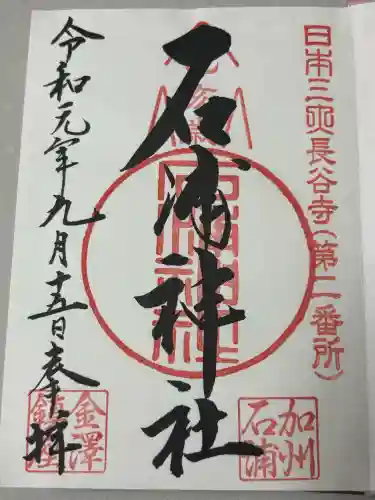 日本三所長谷寺(第二番所)
石浦神社
加州
石浦
令和元年九月十五日奉拝
金澤